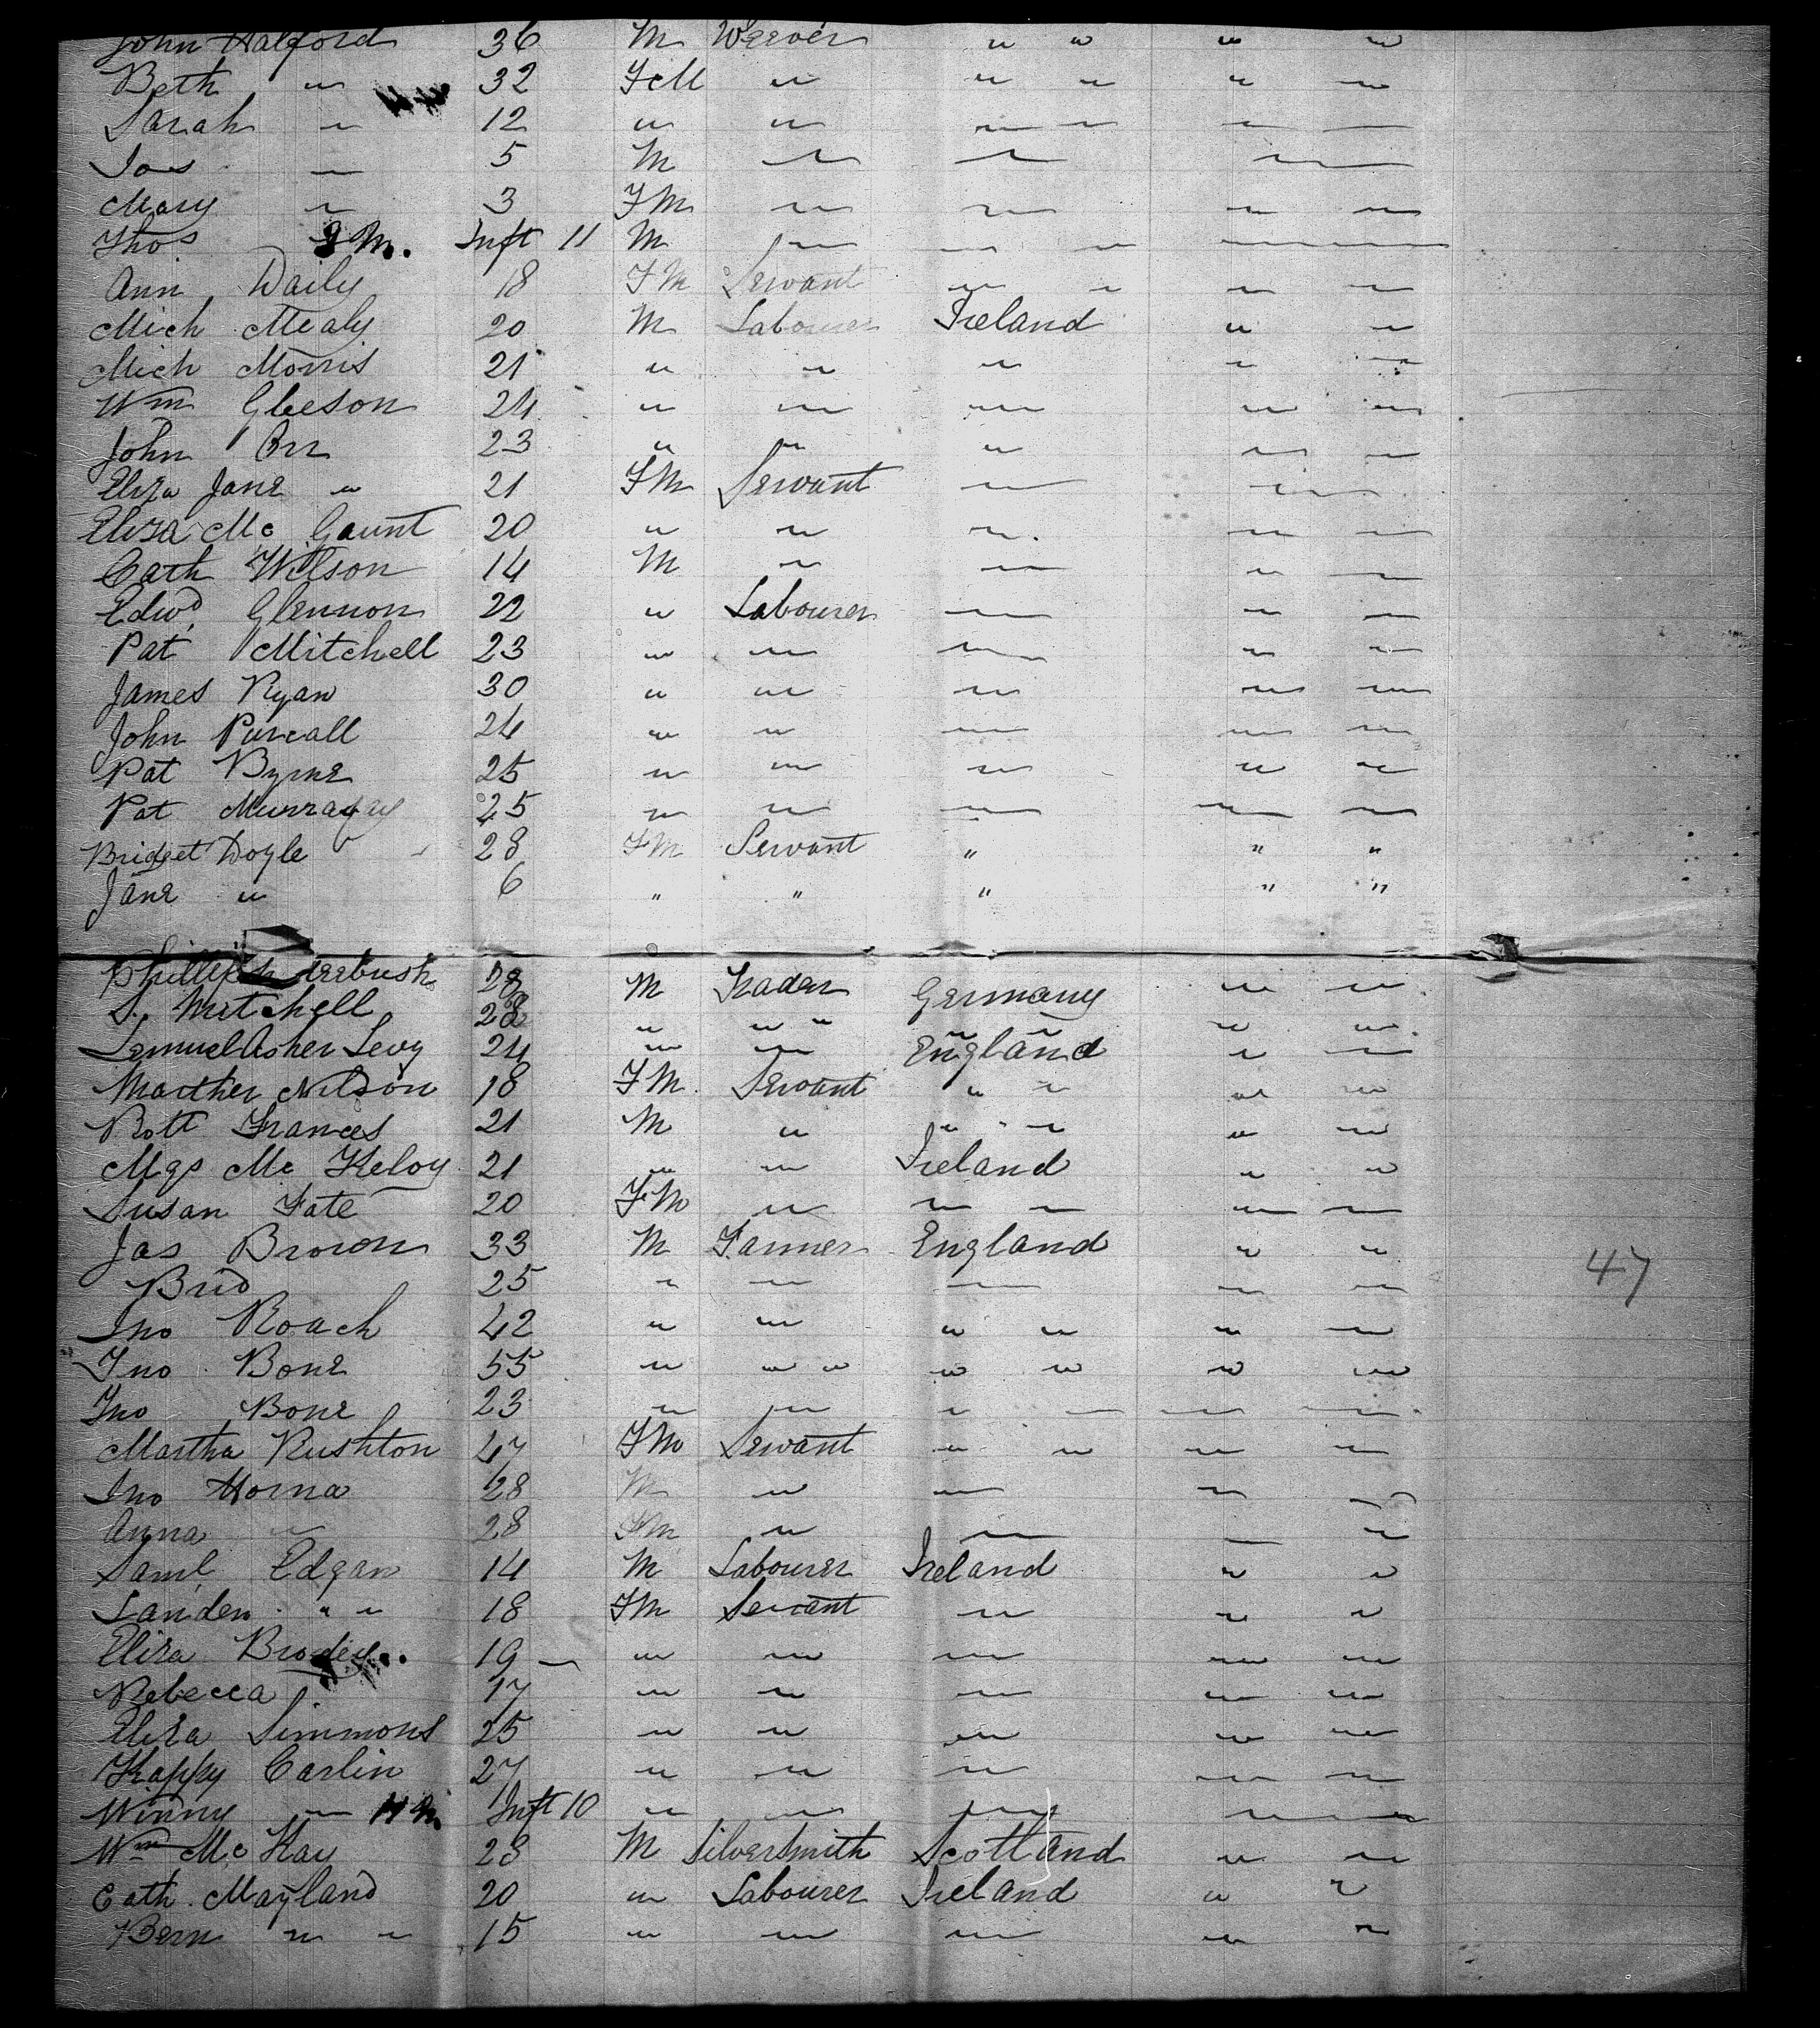 John Halford 36 M Weaver " " " "
Beth " 32 FeM " " " " "
Sarah " 12 " " " " " "
Jas " 5 M " " "
Mary " 3 FM " " " "
Thos " M. Inft 11 M " " " "
Ann Daily 18 FM Servant " " " "
Mich Mealy 20 M Labourer Ireland " "
Mich Morris 21 " " " " "
Wm Gleeson 24 " " " " "
John Orr 23 " " " " "
Eliza Jane " 21 FM Servant " "
Eliza Mc Gaunt 20 " " " " "
Cath Wilson 14 M " " " "
Edwd Glennon 22 " Labourer " " "
Pat Mitchell 23 " " " " "
James Ryan 30 " " " " "
John Purcall 24 " " " " "
Pat Byrne 25 " " " " "
Pat Murray 25 " " " " "
Bridget Doyle 28 FM Servant " " "
Jane " 6 " " " " "
Phillip 28 M Trader Germany " "
S. Mitchell 28 " " " " " " "
Samuel Asher Levy 24 " " England " "
Marther Nilson 18 FM Servant " " " "
Robt Frances 21 M " " " " "
Mgs Mc Keloy 21 " " Ireland " "
Susan Tate 20 FM " " " " "
Jas Brown 33 M Farmer England " "
Brid 25 " " " " "
Jno Roach 42 " " " " " "
Jno Bone 55 " " " " " " "
Jno Bone 23 " " " " " "
Martha Rushton 47 FM Servant " " " "
Jno Horna 28 M " " " "
Anna " 28 FM " " " "
Saml Edgan 14 M Labourer Ireland " "
Landen " " 18 FM Servant " " "
Eliza Brodey 19 " " " " "
Rebecca 17 " " " " "
Eliza Simmons 25 " " " " "
Kappy Carlin 27 " " " " "
Winny " M Inft 10 " " " "
Wm Mc Kay 28 M Silversmith Scotland " "
Cath. Mayland 20 " Labourer Ireland " "
Bern " " 15 " " " " "
47